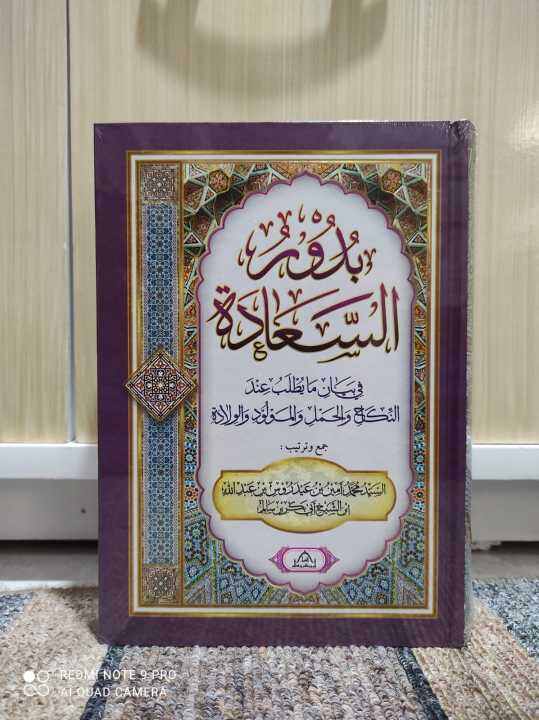 بُدُوْرُ
السَّعَادَة
فِي بَيَانِ مَا يُطْلَبُ عِنْدَ
النِّكَاحِ وَالحَمْلِ وَالمَوْلُوْدِ وَالوِلَادَةِ
جمع وترتيب :
السَّيِّد مُحَمَّد أَمِين بْن عَيْدَرُوْس بْن عَبْد الله
ابْن الشَّيْخ أَبِي بَكْر بْن سَالِم
REDMI NOTE 9 PRO
AI QUAD CAMERA